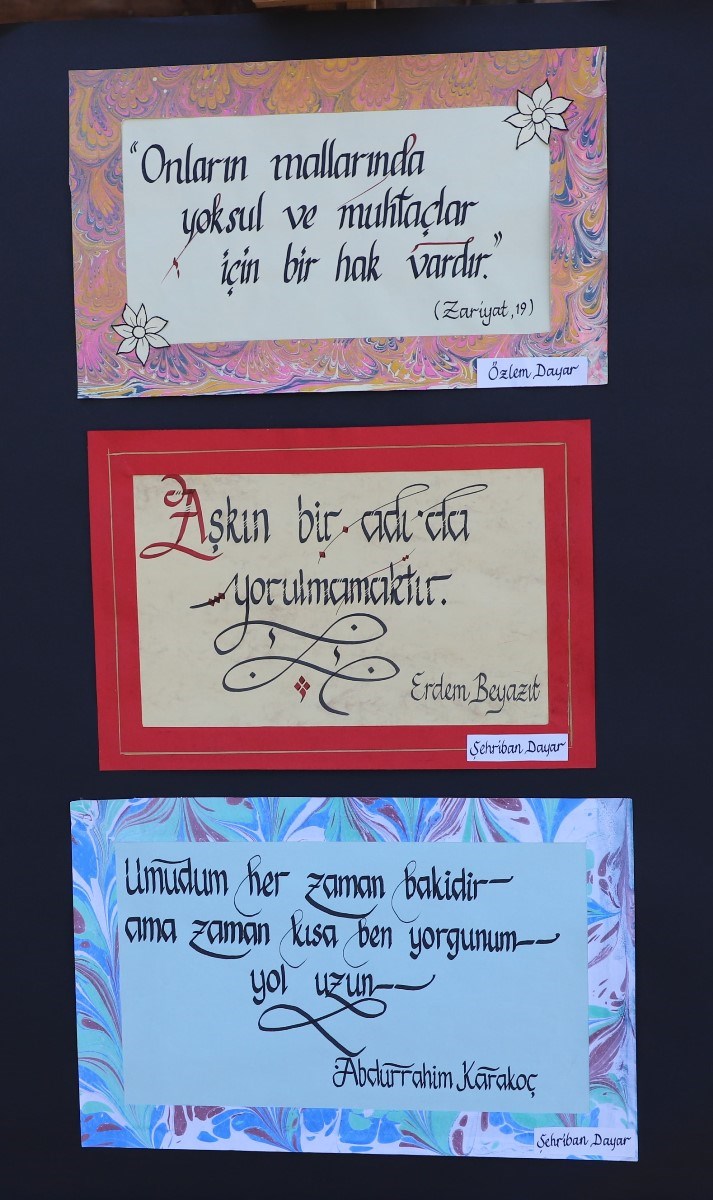 “Onların mallarında
yoksul ve muhtaçlar
için bir hak vardır.”
(Zariyat, 19)
Özlem Dayar
Aşkın bir adı da
yorulmamaktır.
Erdem Beyazıt
Şehriban Dayar
Umudum her zaman bakidir—
ama zaman kısa ben yorgunum——
yol uzun——
Abdurrahim Karakoç
Şehriban Dayar